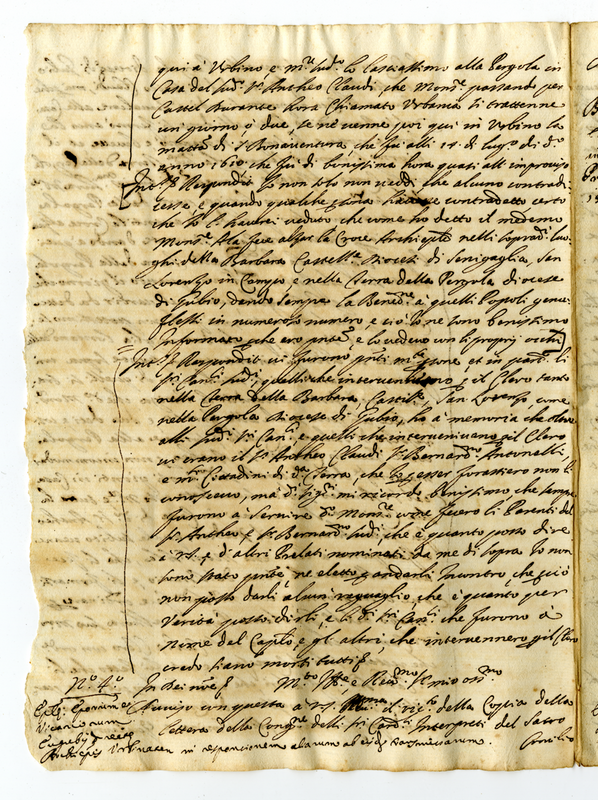 qui à Urbino e m.r Lud.o lo lasciassimo alla Pergola in
Casa del Sud.o S.r Antheo Claudi, che Mons.re passando per
Castel Durante hora Chiamato Urbania si trattenne
un giorno ò due, se ne venne poi qui in Urbino la
matt.a di S. Bonaventura che fù alli 14 di lug.o di d.o
anno 1610 che fù di bonissima hora quasi all' improviso
Int.s Respondit Io non solo non viddi che alcuno contradi
cesse, e quando qualche havesse contradetto certo
che Io l' haverei veduto che come ho detto il medemo
Mons.re fece alzar la Croce Archiep.le nelli soprad.i luo
ghi della Barbara Castell.a Diocesi di Senigaglia, San
Lorenzo in Campo, e nella Terra della Pergola diocese
di Gubio, dando sempre la Bened.ne à quelli Popoli genu
flessi in numeroso numero e ciò lo ne sono benissimo
Informato perche ero pnte, e lo vedevo con li proprij occhi
Int.s Respondit vi furono più persone, et in part.e li
SS.ri Can.ci Sud.i, quelli che intervennero p il Clero tanto
nella Terra della Barbara, Castell.a, San Lorenzo, come
nella Pergola Diocese di Gubio, hò à memoria che oltre
alli Sud.i SS.ri Can.ci e quelli che intervenivano p il Clero
vi erano il S.r Antheo Claudi S.r Bernard.no Antonelli,
e m.ti Cittadini di d.a Terra, che p esser forastiero non li
conoscevo, ma d.i Sig.ri mi ricordo benissimo che sempre
furono à servire d.o Mons.re come fecero li Parenti del
S.r Antheo e S.r Bernard.no Sud.i, che è quanto posso dire
à V.S. e d' altri Prelati nominati da me di sopra Io non
sono stato pnte, ne eletto p andarli Incontro, che p ciò
non posso darli alcun raguaglio, che è quanto per
verità posso dirli, e li d.i SS.ri Can.ci che furono à
nome del Cap.lo, e gl' altri che intervennero p il Clero
credo siano morti tutti
N.o 4.o
In Dei nõe
M.to Ill.re, e Rev.mo S.r mio oss.mo
Epl.a
Vicariorum
Eusebij
Archiepi Urbinaten in responcionem alarum ab eisd.
Accuso con questa à V.S. della Copia della
lettera della Congne delli SS.ri Card.li Interpreti del Sacro
Concilio